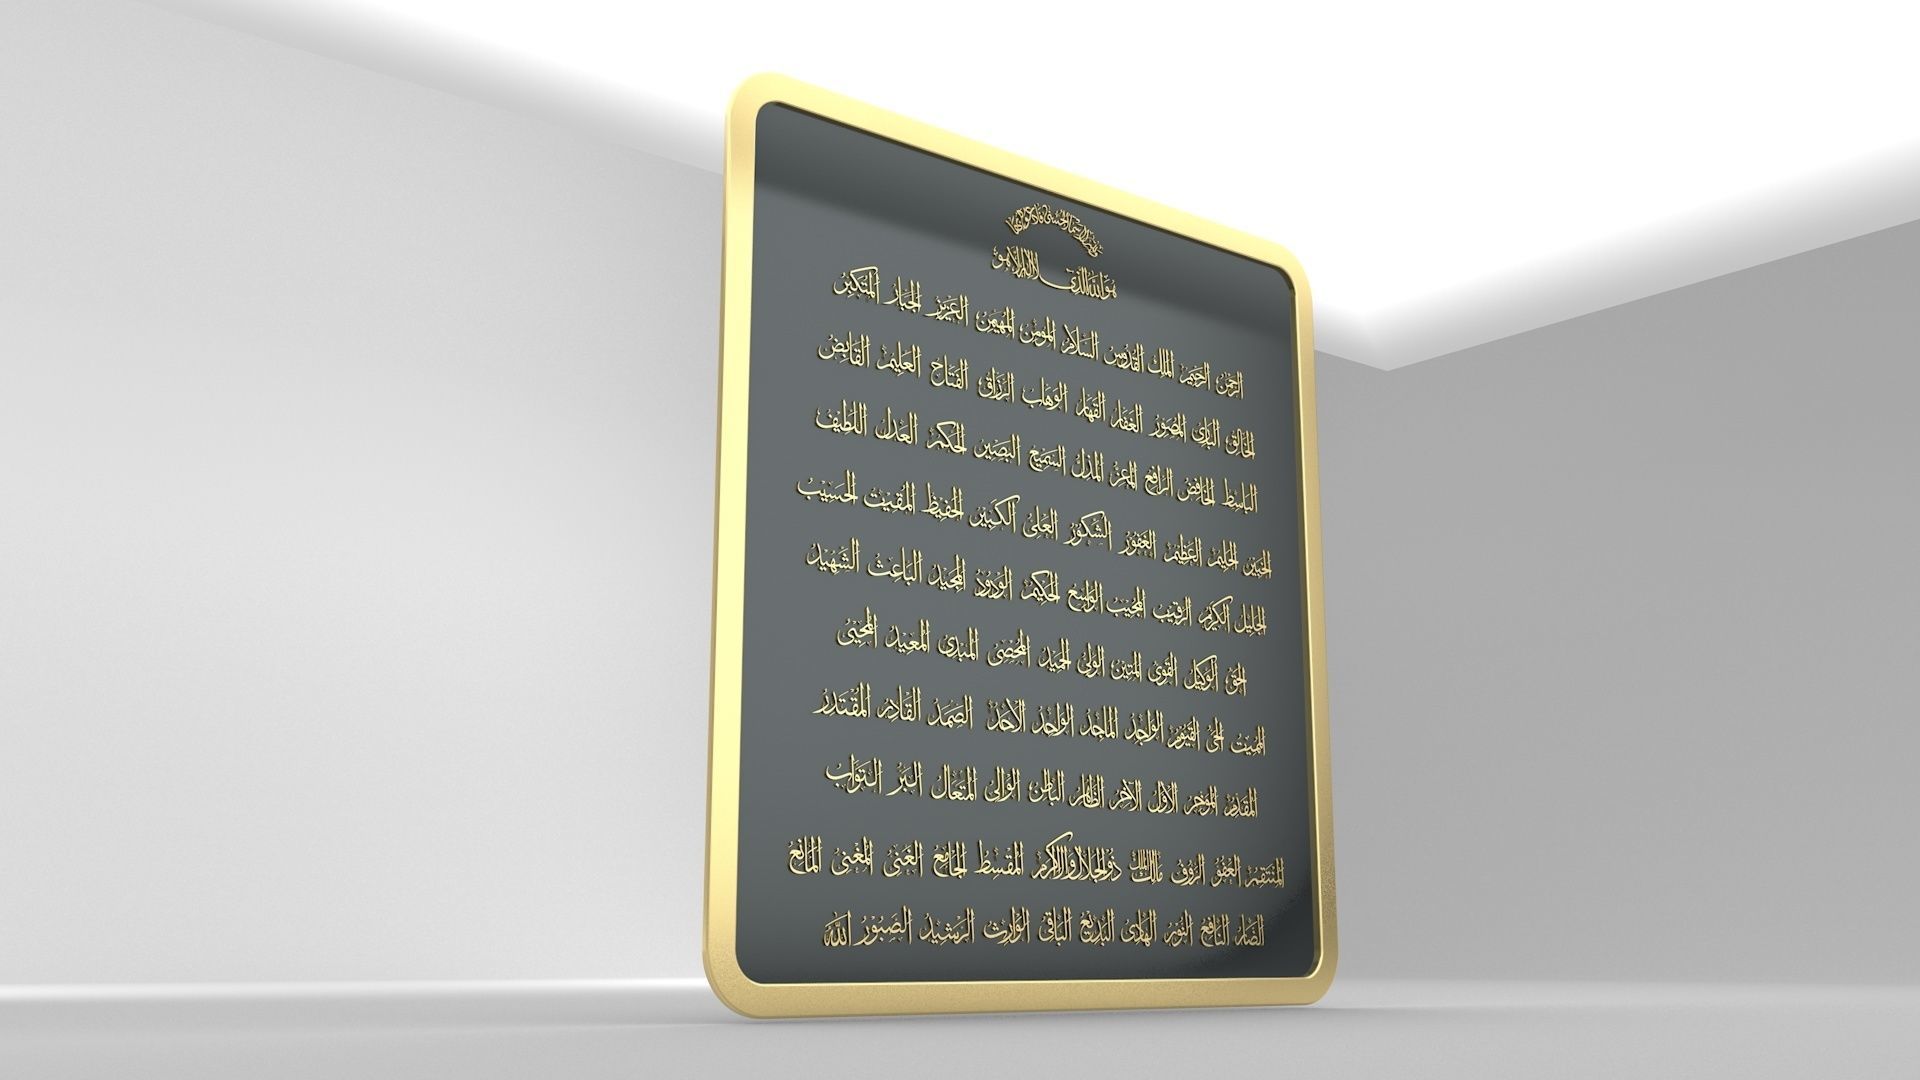 ولله الاسماء الحسنى فادعوه بها
هو الله الذي لا اله الا هو
الرحمن الرحيم الملك القدوس السلام المؤمن المهيمن العزيز الجبار المتكبر
الخالق البارئ المصور الغفار القهار الوهاب الرزاق الفتاح العليم القابض
الباسط الخافض الرافع المعز المذل السميع البصير الحكم العدل اللطيف
الخبير الحليم العظيم الغفور الشكور العلى الكبير الحفيظ المقيت الحسيب
الجليل الكريم الرقيب المجيب الواسع الحكيم الودود المجيد الباعث الشهيد
الحق الوكيل القوى المتين الولى الحميد المحصى المبدى المعيد المحيى
المميت الحى القيوم الواجد الماجد الواحد الاحد الصمد القادر المقتدر
المقدم الموخر الاول الآخر الظاهر الباطن الوالى المتعال البر التواب
المنتقم العفو الروف مالك الملك ذوالجلال والاكرام المقسط الجامع الغنى المغنى المانع
الضار النافع النور الهادى البديع الباقى الوارث الرشيد الصبور الله